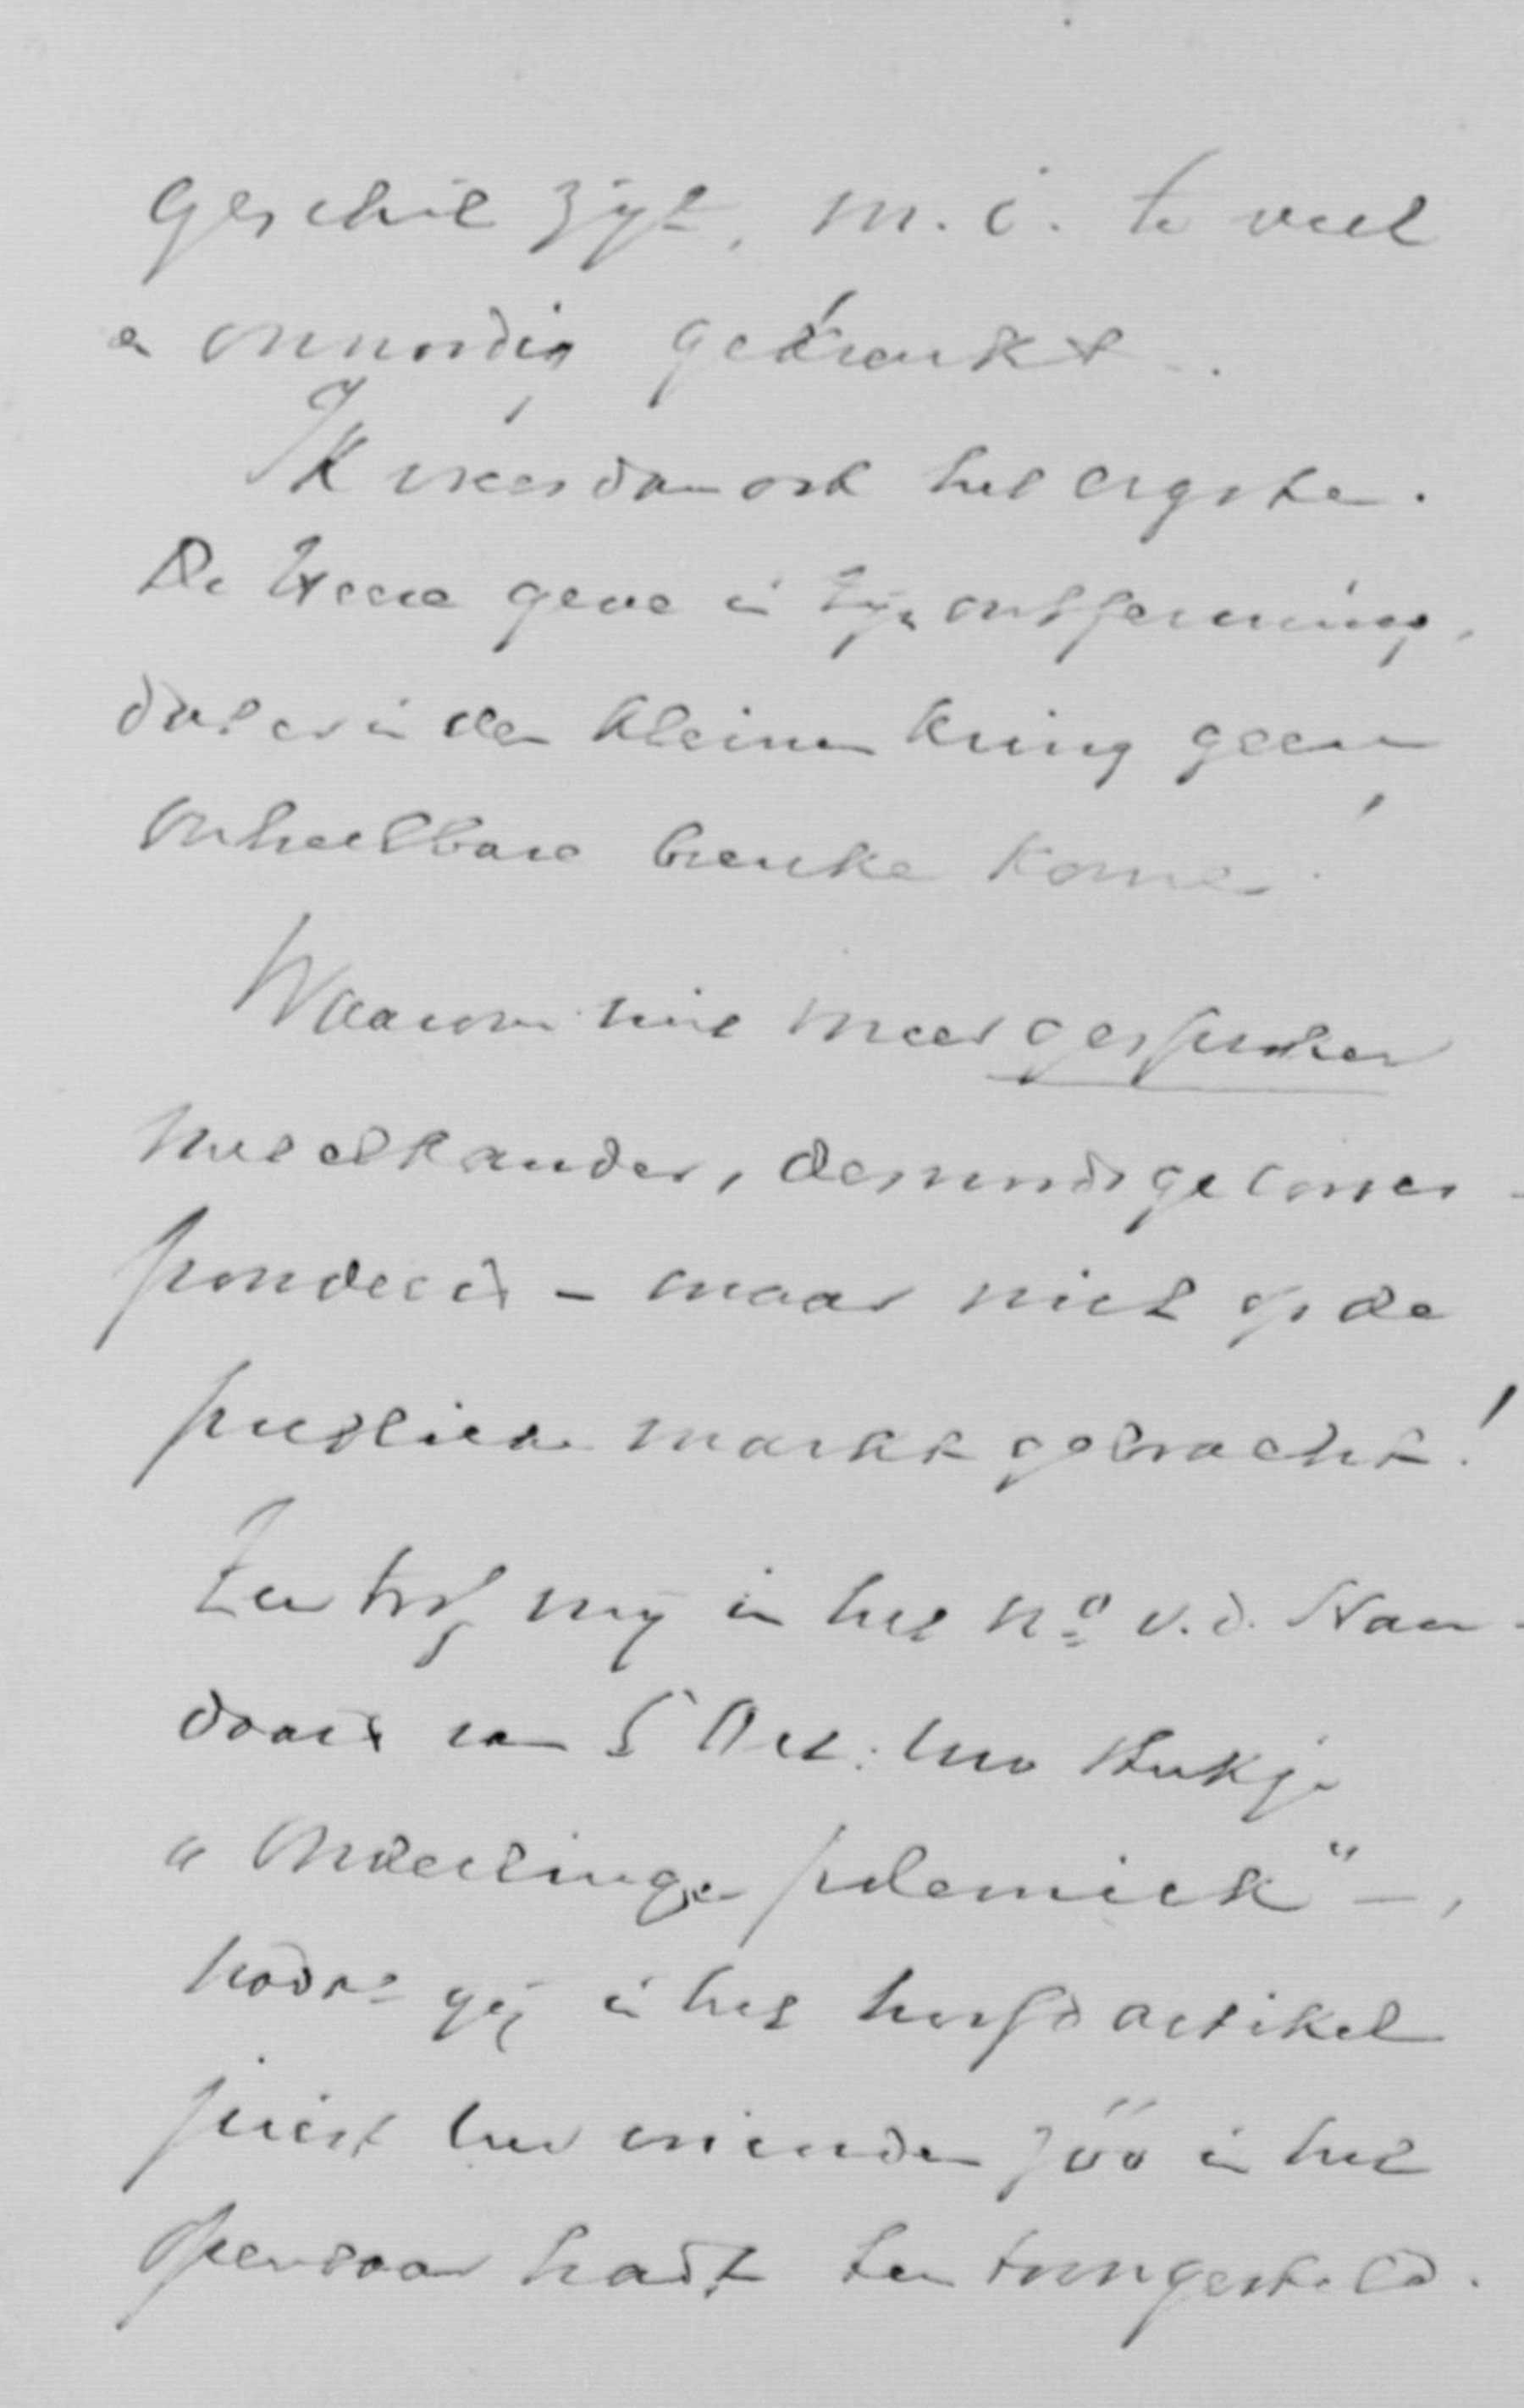 geschil zijt, m.i. te veel
en onnoodig gekrenkt.
Ik vrees dan ook het ergste.
De Heere geve in Zijn ontferming,
dat er in den kleinen kring geen
onheelbare breuke kome!
Waarom niet meer gesproken
met elkander, desnoods gecorres-
pondeerd – maar niet op de
publieke markt gebracht!
Zeer trof mij in het No v.d. Stan-
daard van 5 Oct. Uw stukje
"Onderlinge polemiek" –,
nadat gij in het hoofdartikel
juist Uw vrienden zóó in het
openbaar hadt ten toon gesteld.